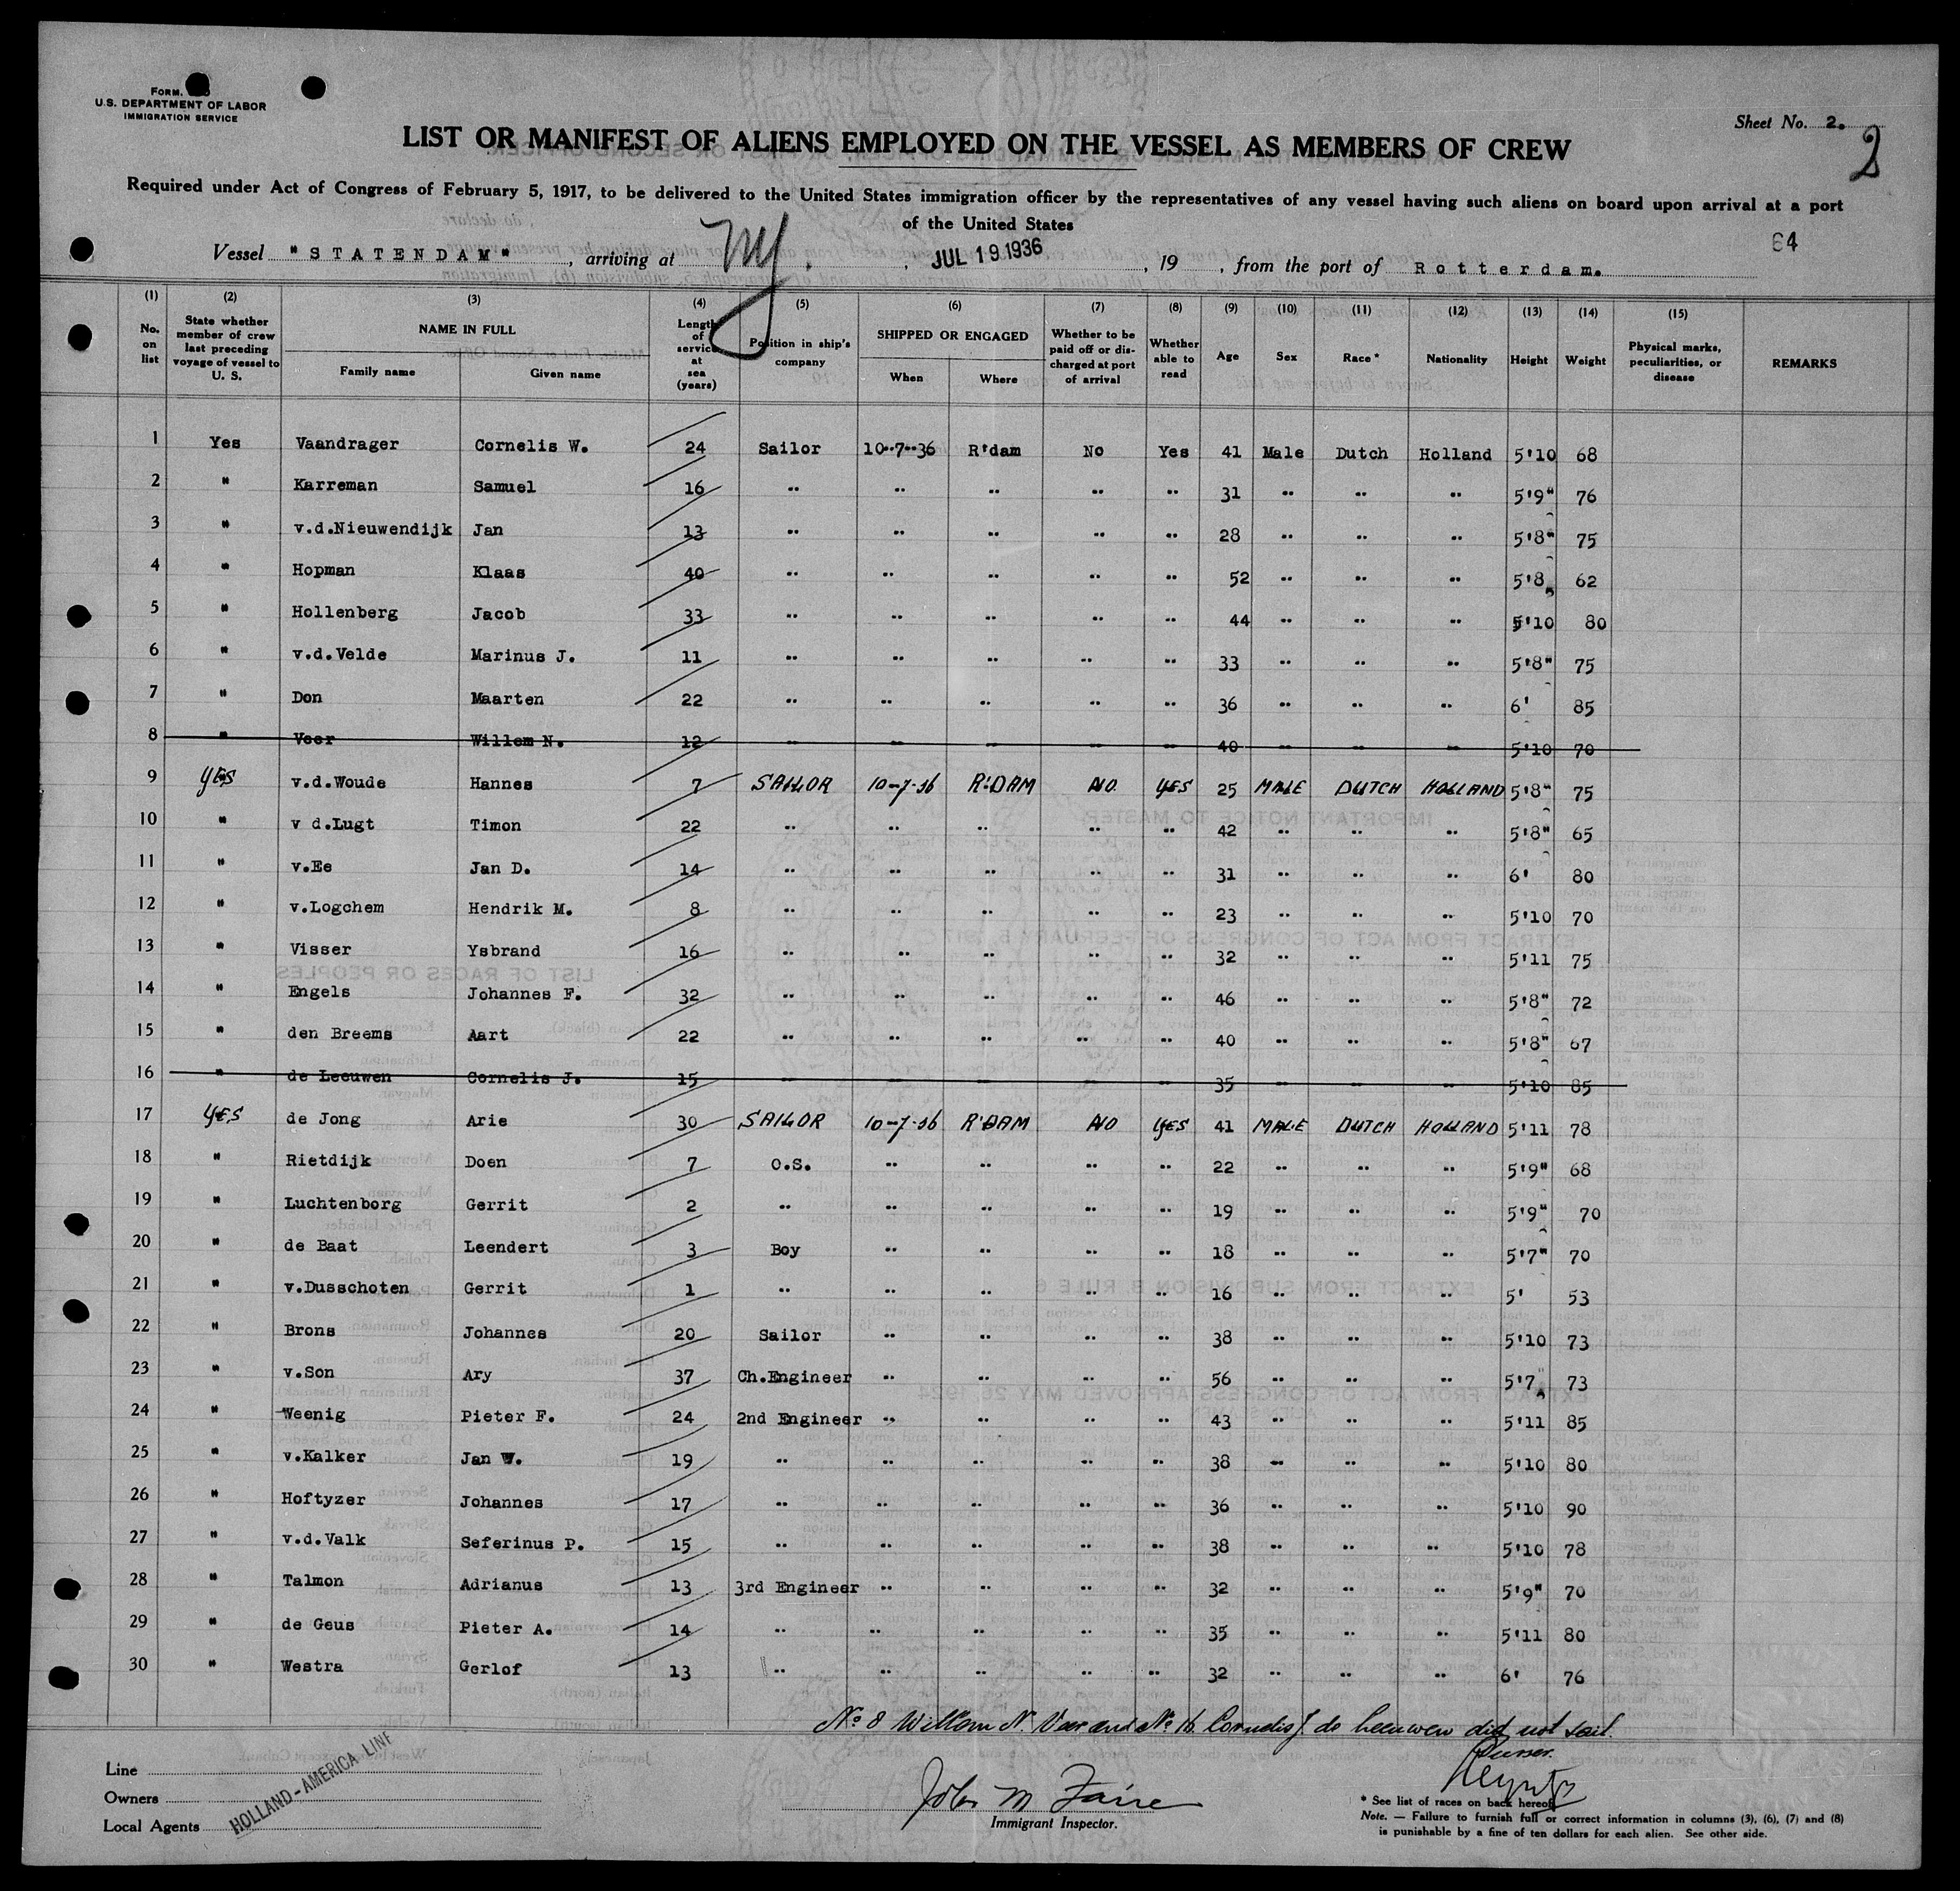 FORM.
U.S. DEPARTMENT OF LABOR
IMMIGRATION SERVICE
Sheet No. 2.
2
LIST OR MANIFEST OF ALIENS EMPLOYED ON THE VESSEL AS MEMBERS OF CREW
Required under Act of Congress of February 5, 1917, to be delivered to the United States immigration officer by the representatives of any vessel having such aliens on board upon arrival at a port
of the United States
64
Vessel "STATENDAM", arriving at NY. , JUL 19 1936, 19 , from the port of Rotterdam.
(1) (2) (3) (4) (5) (6) (7) (8) (9) (10) (11) (12) (13) (14) (15)
No. on list | State whether member of crew last preceding voyage of vessel to U. S. | NAME IN FULL Family name Given name | Length of service at sea (years) | Position in ship's company | SHIPPED OR ENGAGED When Where | Whether to be paid off or discharged at port of arrival | Whether able to read | Age | Sex | Race * | Nationality | Height | Weight | Physical marks, peculiarities, or disease | REMARKS
1 Yes Vaandrager Cornelis W. 24 Sailor 10--7--36 R'dam No Yes 41 Male Dutch Holland 5'10 68
2 " Karreman Samuel 16 " " " " " 31 " " " 5'9" 76
3 " v.d.Nieuwendijk Jan 13 " " " " " 28 " " " 5'8" 75
4 " Hopman Klaas 40 " " " " " 52 " " " 5'8" 62
5 " Hollenberg Jacob 33 " " " " " 44 " " " 5'10 80
6 " v.d.Velde Marinus J. 11 " " " " " 33 " " " 5'8" 75
7 " Don Maarten 22 " " " " " 36 " " " 6' 85
8 " Veer Willem N. 12 " " " " " 40 " " " 5'10 70
9 YES v.d.Woude Hannes 7 SAILOR 10-7-36 R'DAM NO YES 25 MALE DUTCH HOLLAND 5'8" 75
10 " v d.Lugt Timon 22 " " " " " 42 " " " 5'8" 65
11 " v.Ee Jan D. 14 " " " " " 31 " " " 6' 80
12 " v.Logchem Hendrik M. 8 " " " " " 23 " " " 5'10 70
13 " Visser Ysbrand 16 " " " " " 32 " " " 5'11 75
14 " Engels Johannes F. 32 " " " " " 46 " " " 5'8" 72
15 " den Breems Aart 22 " " " " " 40 " " " 5'8" 67
16 " de Leeuwen Cornelis J. 15 " " " " " 35 " " " 5'10 85
17 YES de Jong Arie 30 SAILOR 10-7-36 R'DAM NO YES 41 MALE DUTCH HOLLAND 5'11 78
18 " Rietdijk Doen 7 O.S. " " " " 22 " " " 5'9" 68
19 " Luchtenborg Gerrit 2 " " " " " 19 " " " 5'9" 70
20 " de Baat Leendert 3 Boy " " " " 18 " " " 5'7" 70
21 " v.Dusschoten Gerrit 1 " " " " " 16 " " " 5' 53
22 " Brons Johannes 20 Sailor " " " " 38 " " " 5'10 73
23 " v.Son Ary 37 Ch.Engineer " " " " 56 " " " 5'7" 73
24 " Weenig Pieter F. 24 2nd Engineer " " " " 43 " " " 5'11 85
25 " v.Kalker Jan W. 19 " " " " " 38 " " " 5'10 80
26 " Hoftyzer Johannes 17 " " " " " 36 " " " 5'10 90
27 " v.d.Valk Seferinus P. 15 " " " " " 38 " " " 5'10 78
28 " Talmon Adrianus 13 3rd Engineer " " " " 32 " " " 5'9" 70
29 " de Geus Pieter A. 14 " " " " " 35 " " " 5'11 80
30 " Westra Gerlof 13 " " " " " 32 " " " 6' 76
No 8 Willem N. Veer and No 16 Cornelis J. de Leeuwen did not sail.
Purser.
Line
Owners
Local Agents
HOLLAND-AMERICA LINE
John M Zaire
Immigrant Inspector.
* See list of races on back hereof
Note. — Failure to furnish full or correct information in columns (3), (6), (7) and (8)
is punishable by a fine of ten dollars for each alien. See other side.